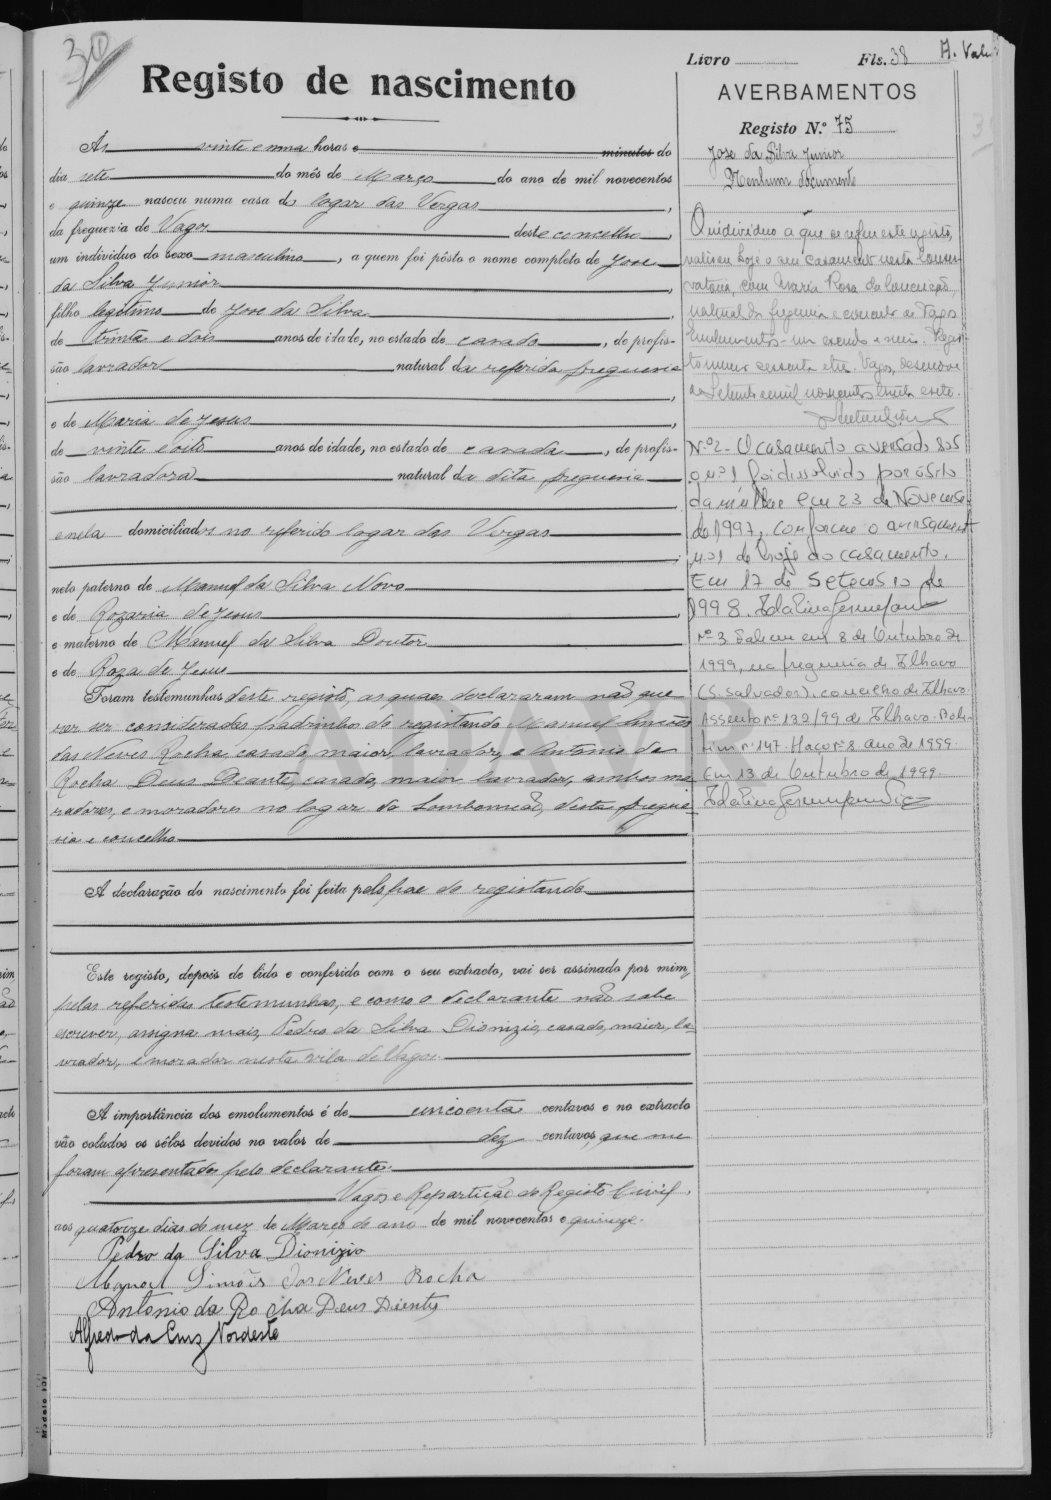 30
Livro Fls. 38
Registo de nascimento
AVERBAMENTOS
Registo N.º 75
José da Silva Junior
Nenhum documento
Ás vinte e uma horas e minutos do
dia sete do mês de Março do ano de mil novecentos
e quinze nasceu numa casa do logar das Vergas,
da freguezia de Vagos deste concelho,
um individuo do sexo masculino, a quem foi pôsto o nome completo de José
da Silva Junior,
filho legitimo de José da Silva,
de trinta e dois anos de idade, no estado de casado, de profis-
são lavrador natural da referida freguesia
,
e de Maria de Jesus,
de vinte e oito anos de idade, no estado de casada, de profis-
são lavradora natural da dita freguesia
e nela domiciliados no referido logar das Vergas
;
neto paterno de Manuel da Silva Novo
e de Rozaria de Jesus,
e materno de Manuel da Silva Doutor
e de Roza de Jesus
Foram testemunhas deste registo, as quaes declararam não que-
rer ser consideradas padrinhos do registando Manuel Simões
das Neves Rocha, casado, maior, lavrador, e Antonio da
Rocha Deus Deante, casado, maior, lavrador, ambos mo-
radores, e moradores no logar do Lombomeão, desta fregue-
sia e concelho
A declaração do nascimento foi feita pelo pae do registando
Este registo, depois de lido e conferido com o seu extracto, vai ser assinado por mim,
pelas referidas testemunhas, e como o declarante não sabe
escrever, assigna mais, Pedro da Silva Dionizio, casado, maior, la-
vrador, e morador nesta vila de Vagos.
A importância dos emolumentos é de cincoenta centavos e no extracto
vão colados os sêlos devidos no valor de dez centavos, que me
foram apresentados pelo declarante.
Vagos e Repartição do Registo Civil,
aos quatorze dias do mez de Março do ano de mil novecentos e quinze.
Pedro da Silva Dionizio
Manoel Simões das Neves Rocha
Antonio da Rocha Deus Diente
Alfredo da Cruz Nordeste
O individuo a que se refere este registo,
realisou hoje o seu casamento nesta Conser-
vatoria, com Maria Rosa da Conceição,
natural da freguesia e concelho de Vagos
Emolumentos - um escudo e meio. Regis-
to numero sessenta e tres. Vagos, desenove
de Setembro de mil novecentos trinta e sete.
N.º 2 - O casamento averbado sob
o nº 1 foi dissolvido por óbito
da mulher em 23 de Novembro
de 1997, conforme o averbamento
nº 1 de hoje ao casamento.
Em 17 de Setembro de
1998.
Nº 3 Faleceu em 8 de Outubro de
1999, na freguesia de Ílhavo
(S. Salvador), concelho de Ílhavo.
Assento nº 132/99 de Ílhavo. Bole-
tim nº 147. Maço nº 8. ano de 1999
Em 13 de Outubro de 1999.
Modelo 101